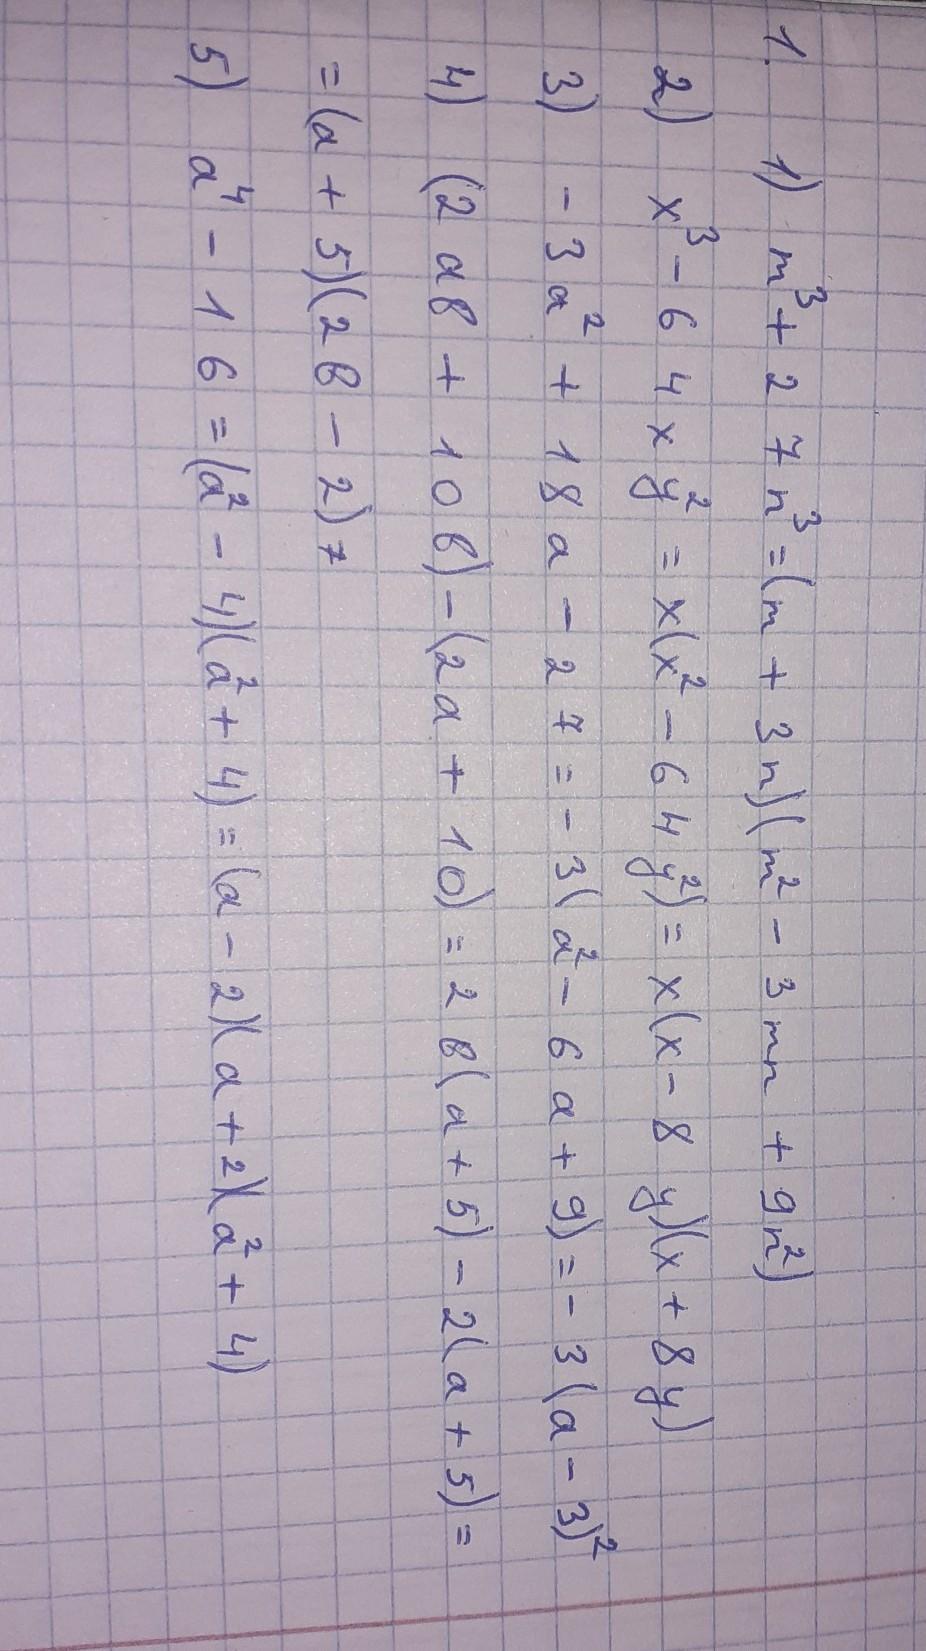 1. 1) m³ + 27n³ = (m + 3n)(m² - 3mn + 9n²)
2) x³ - 64xy² = x(x² - 64y²) = x(x - 8y)(x + 8y)
3) - 3a² + 18a - 27 = - 3(a² - 6a + 9) = - 3(a - 3)²
4) (2aв + 10в) - (2a + 10) = 2в(a + 5) - 2(a + 5) =
= (a + 5)(2в - 2)
5) a⁴ - 16 = (a² - 4)(a² + 4) = (a - 2)(a + 2)(a² + 4)